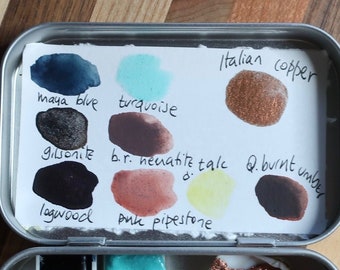 Italian copper
maya blue turquoise
gilsonite b.r. hematite talc Q. burnt umber
d.
logwood pink pipestone